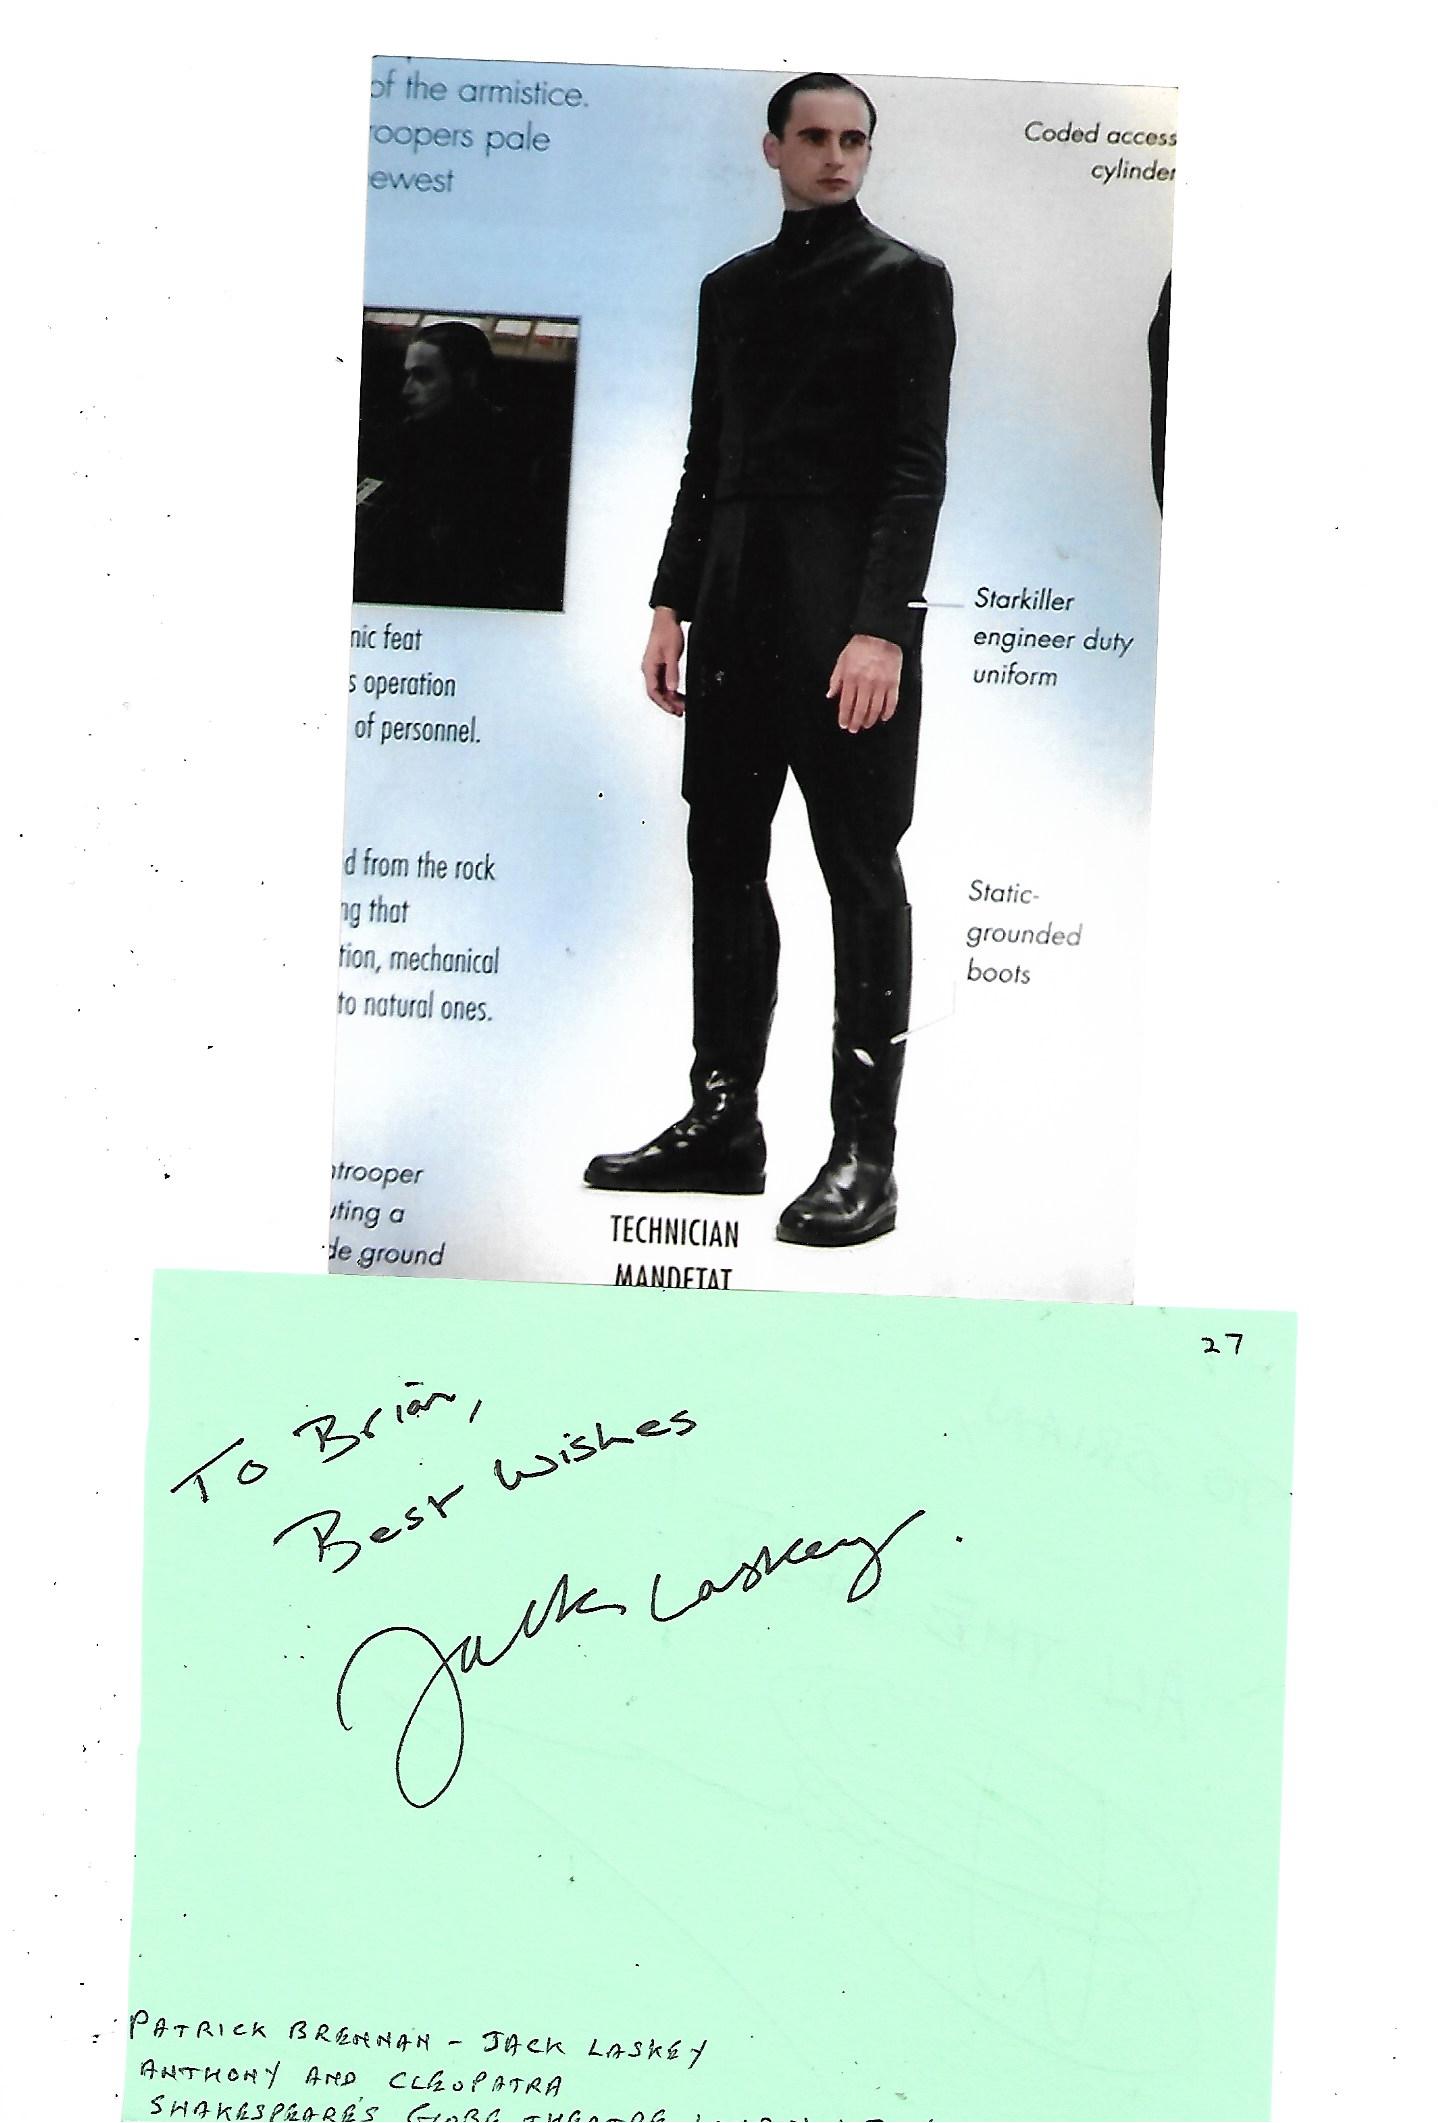 of the armistice.
roopers pale
ewest
Coded access
cylinder
nic feat
s operation
of personnel.
Starkiller
engineer duty
uniform
d from the rock
ng that
tion, mechanical
to natural ones.
Static-
grounded
boots
trooper
uting a
de ground
TECHNICIAN
MANDETAT
27
To Brian,
Best Wishes
Jack Laskey.
PATRICK BRENNAN - JACK LASKEY
ANTHONY AND CLEOPATRA
SHAKESPEARE'S GLOBE THEATRE